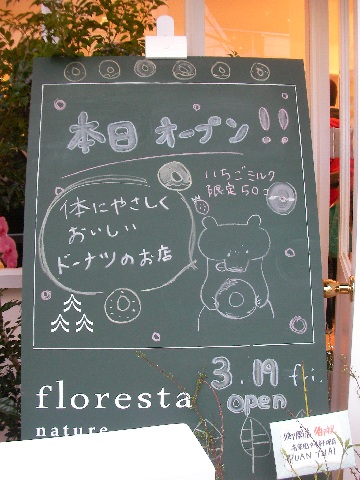 本日 オープン!!
いちごミルク
限定50コ
体にやさしく
おいしい
ドーナツのお店
floresta
nature
3.19 fri.
open